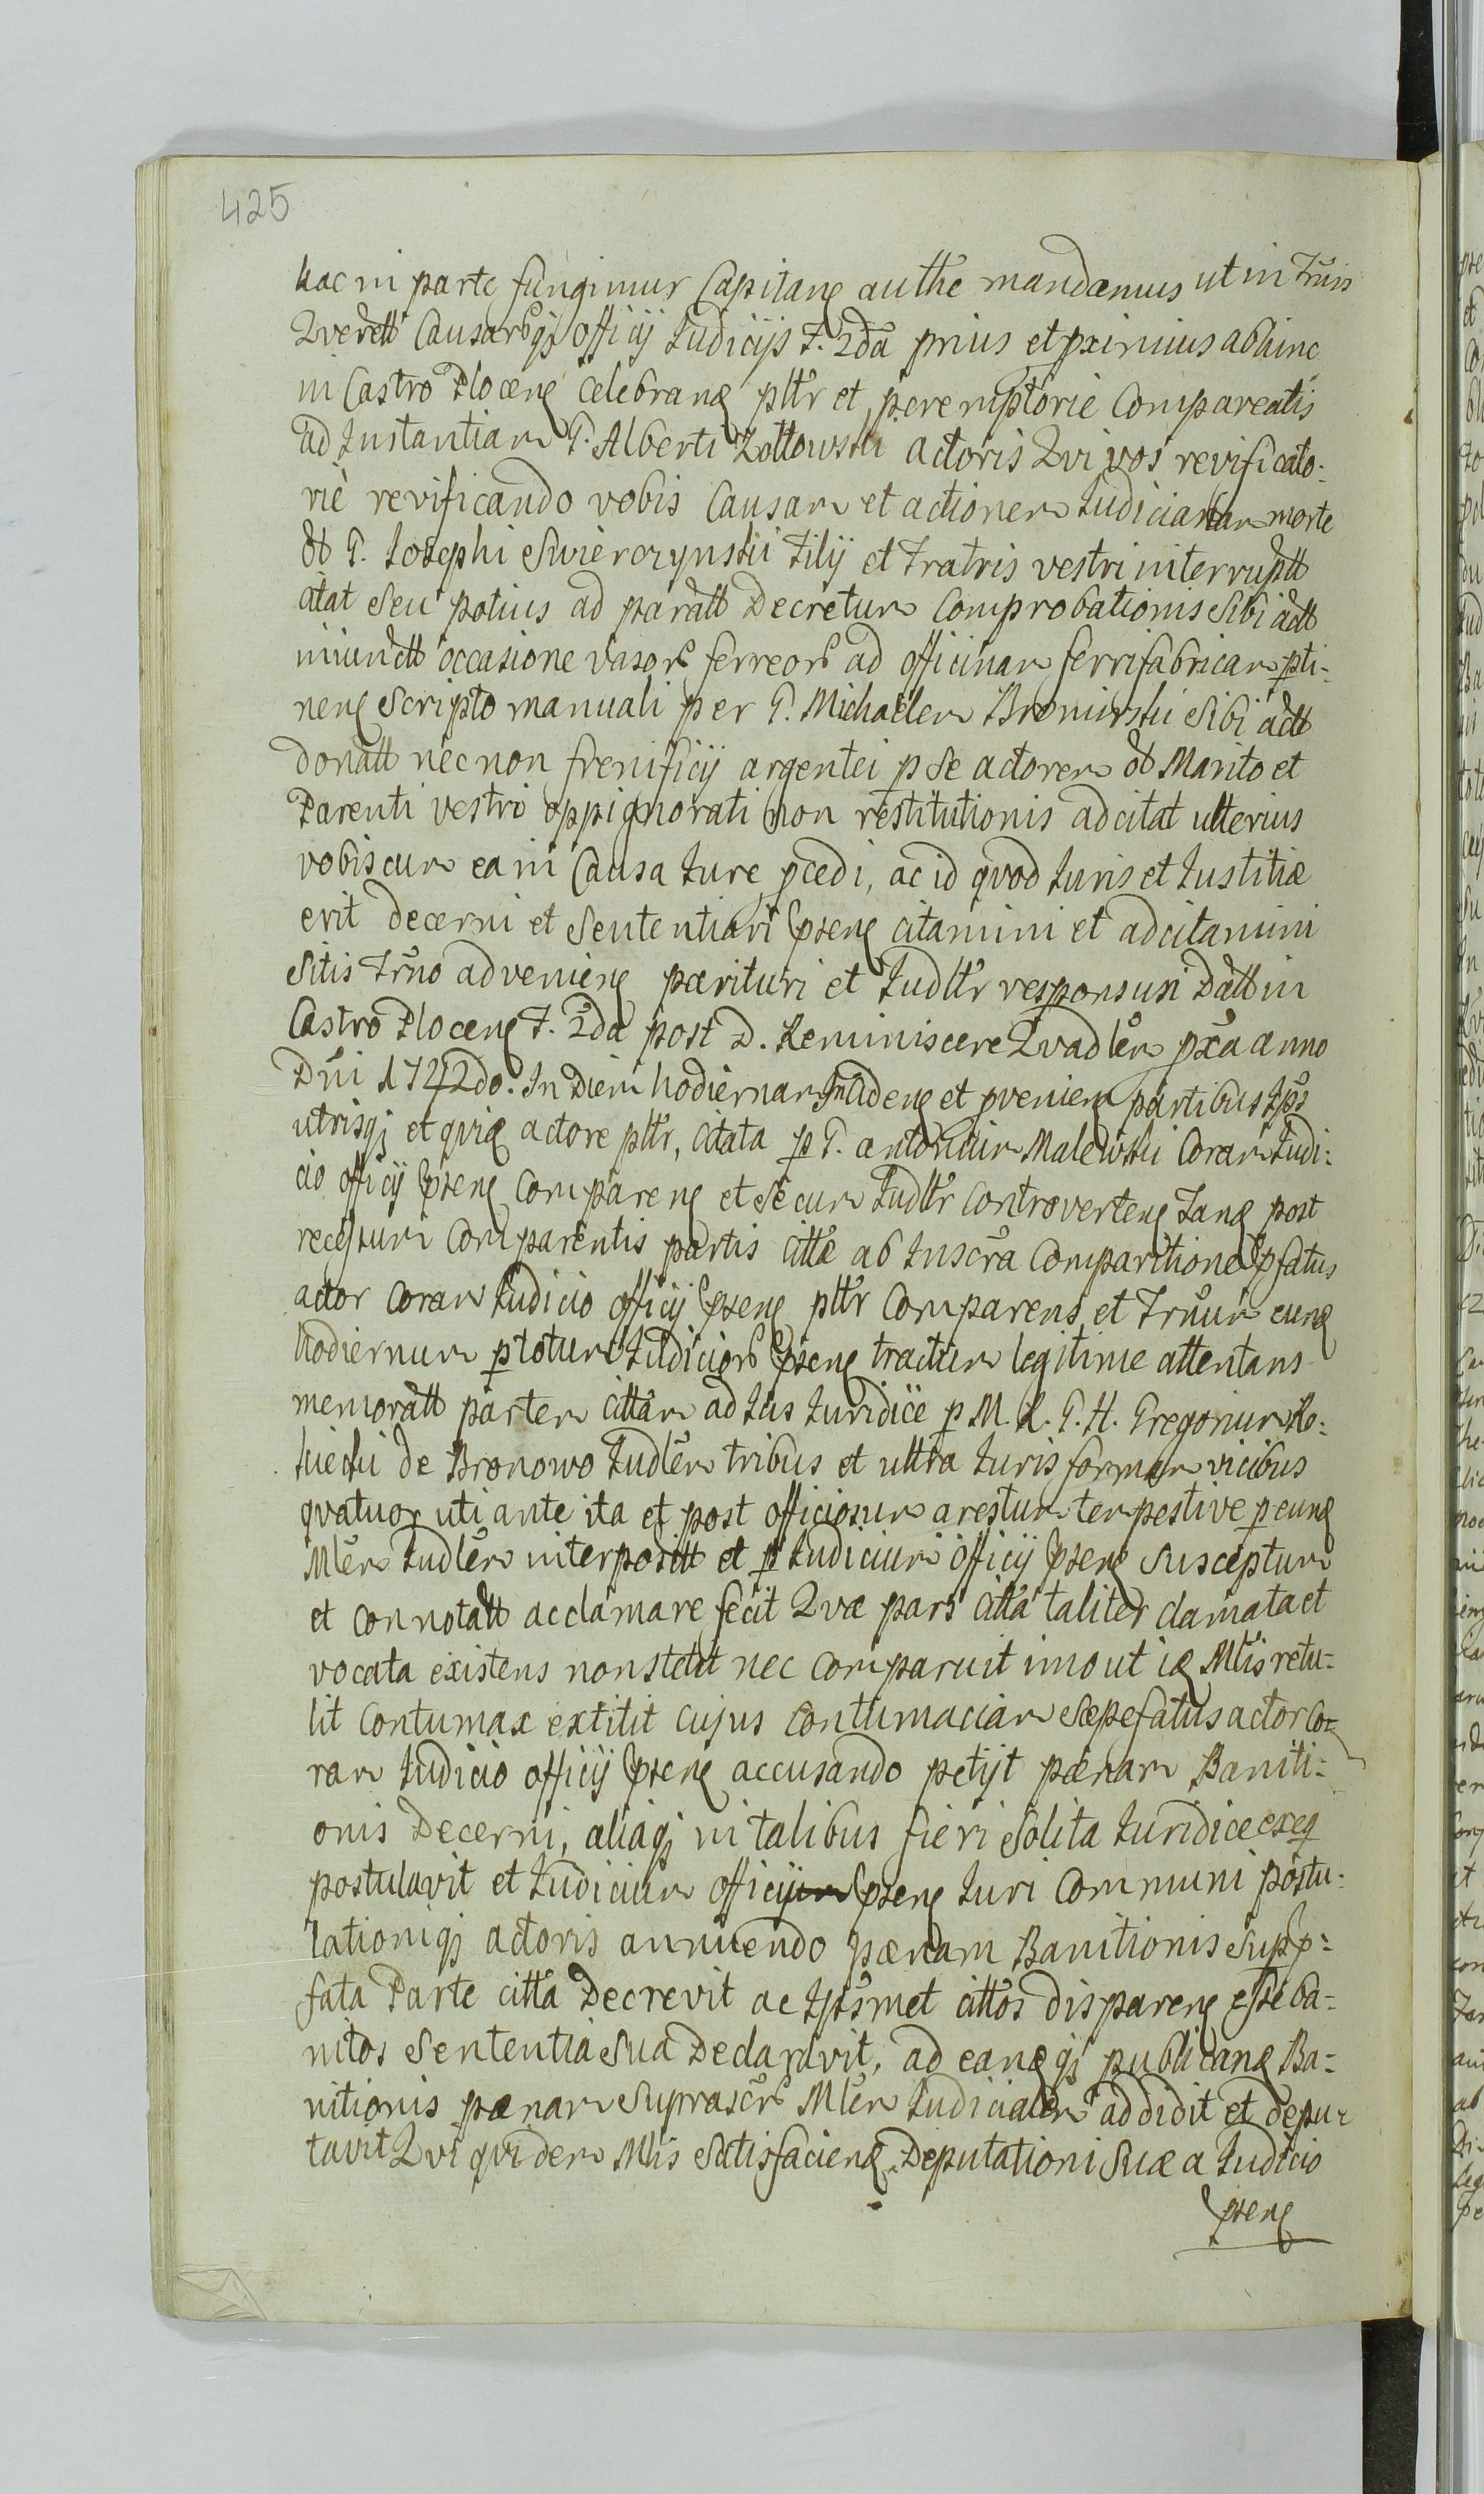 425
hac in parte fungimur Capitanẹ authẽ mandamus ut in Trũis
Qverett Causarꝵ qꝫ Officij Judicijs F. 2dã prius et pximius abhinc
in Castro Plocenꝭ celebranꝭ pltr et peremptorie Compareatis
ad Instantiam G. Alberti Zołtowski actoris Qvi vos revificato:
riè revificando vobis Causam et actionem Judiciariam morte
ol G. Josephi Swierczynski Filij et Fratris vestri interruptt
citat seu potius ad paratt Decretum Comprobationis Sibi actt
iniunctt occasione vasorꝵ ferreorꝵ ad officinam ferrifabricam pti:
nenꝭ Scripto manuali per G. Michaelem Bromirski Sibi actt
donatt nec non frenificij argentei p Se actorem ol Marito et
Parenti vestri oppignorati non restitutionis adcitat ulterius
vobiscum ea in Causa Jure pcedi, ac id qvod Juris et Justitiæ
erit decerni et Sententiari Ppsenꝭ citamini et adcitamini
Sitis Trño advenienꝭ parituri et Judltr responsuri Datt in
Castro Plocenꝭ F. 2dã post D. Reminiscere Qvadlem pxã anno
Dñi 1742do. In Diem hodiernam Incidenꝭ et pvenienꝭ partibus Ips
utrisqꝫ et qvidꝭ actore pltr, citata p G. antonium Malewski Coram Judi:
cio officij Ppsenꝭ Comparenꝭ et Secum Judltr Controvertenꝭ Tanꝭ post
recessum Comparentis partis cittæ ab Inscra Comparitione Ppfatus
actor Coram Judicio officij Ppsenꝭ pltr Comparens et Trñum eunꝭ
hodiernum p totum Judiciorꝵ Ppsenꝭ tractum legitime attentans
memoratt partem cittam ad Jus Juridicè p M. R. G. H. Gregorium Ro:
kicki de Bronowo Judlem tribus et ultra Juris formam vicibus
qvatuor uti ante ita et post officiosum arestum tempestive p eunꝭ
Mlem Judlem interpositt et p Judicium officij Ppsenꝭ Susceptum
et Connotatt acclamare fecit Qvæ pars citta taliter clamata et
vocata existens non stetit nec Comparuit imo ut iꝭ Mlis retu=
lit Contumax extitit cujus Contumaciam Sæpefatus actor co=
ram Judicio officij Ppsenꝭ accusando petijt pænam Baniti=
onis Decerni, aliaqꝫ in talibus fieri Solita Juridice exeq
postulavit et Judicium officij Ppsenꝭ Juri Communi postu=
lationiqꝫ actoris annuendo pænam Banitionis Supp=
fata Parte citta Decrevit ac Ipsmet cittos disparenꝭ esse ba=
nitos Sententia Sua Declaravit, ad eanꝭ qꝫ publicanꝭ Ba=
nitionis pænam Suprascrꝵ Mlem Judicialem addidit et depu=
tavit Qvi qvidem Mlis Satisfacienꝭ Deputationi Suæ a Judicio
Ppsenꝭ